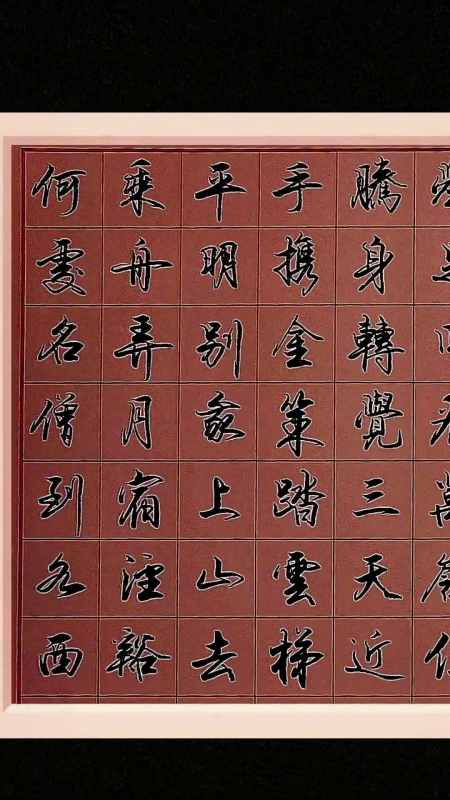 何處名僧到水西
乘舟弄月宿涇谿
平明別我上山去
手携金策踏雲梯
騰身轉覺三天近